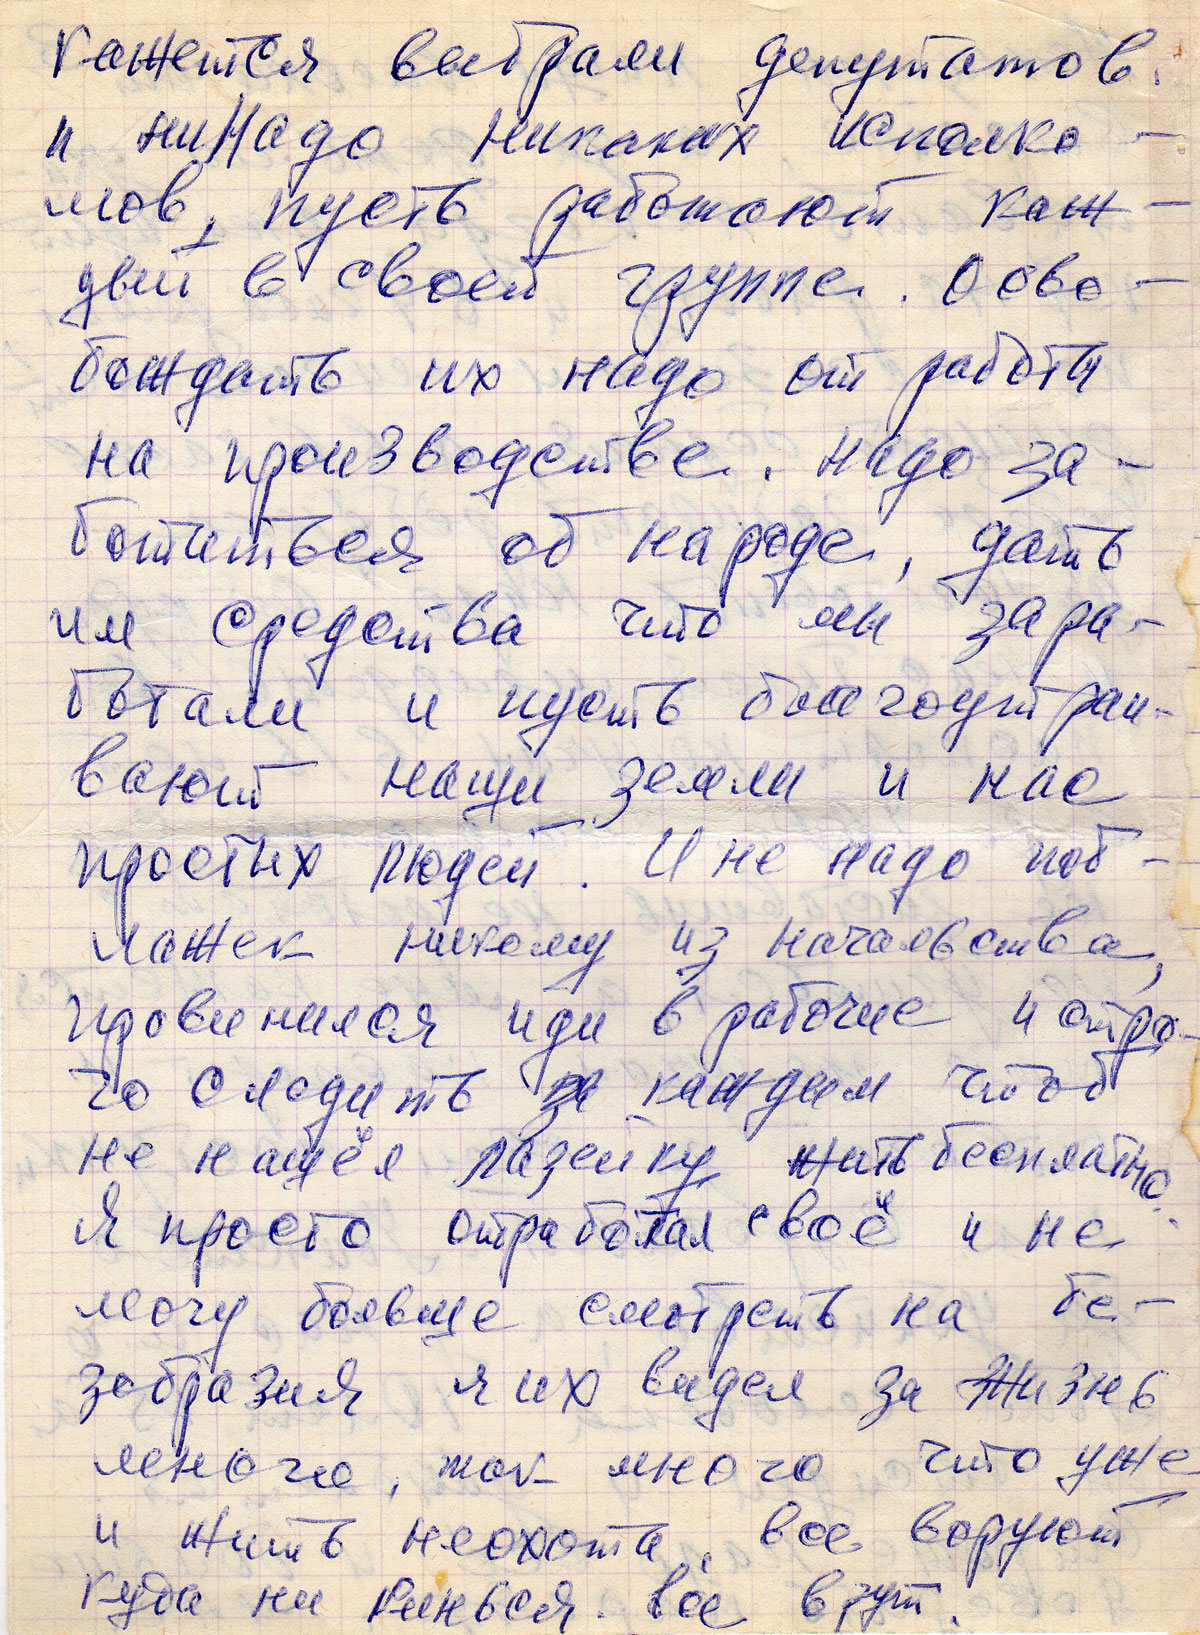 кажется выбрали депутатов.
и ниНадо никаких исполко-
мов, пусть работают каж-
дый в своей группе. Осво-
бождать их надо от работы
на производстве. надо за-
ботиться об народе, дать
им средства что мы зара-
ботали и пусть благоустраи-
вают нащи земли и нас
простых людей. И не надо поб-
лажек никому из начальства,
провинился иди в рабочие и стро-
го следить за каждым чтоб
не нашёл лазейку жить бесплатно.
Я просто отработал своё и не
могу больше смотреть на бе-
зобразия я их видел за жизнь
много, так много что уже
и жить неохота. все воруют
куда ни кинься. все врут.